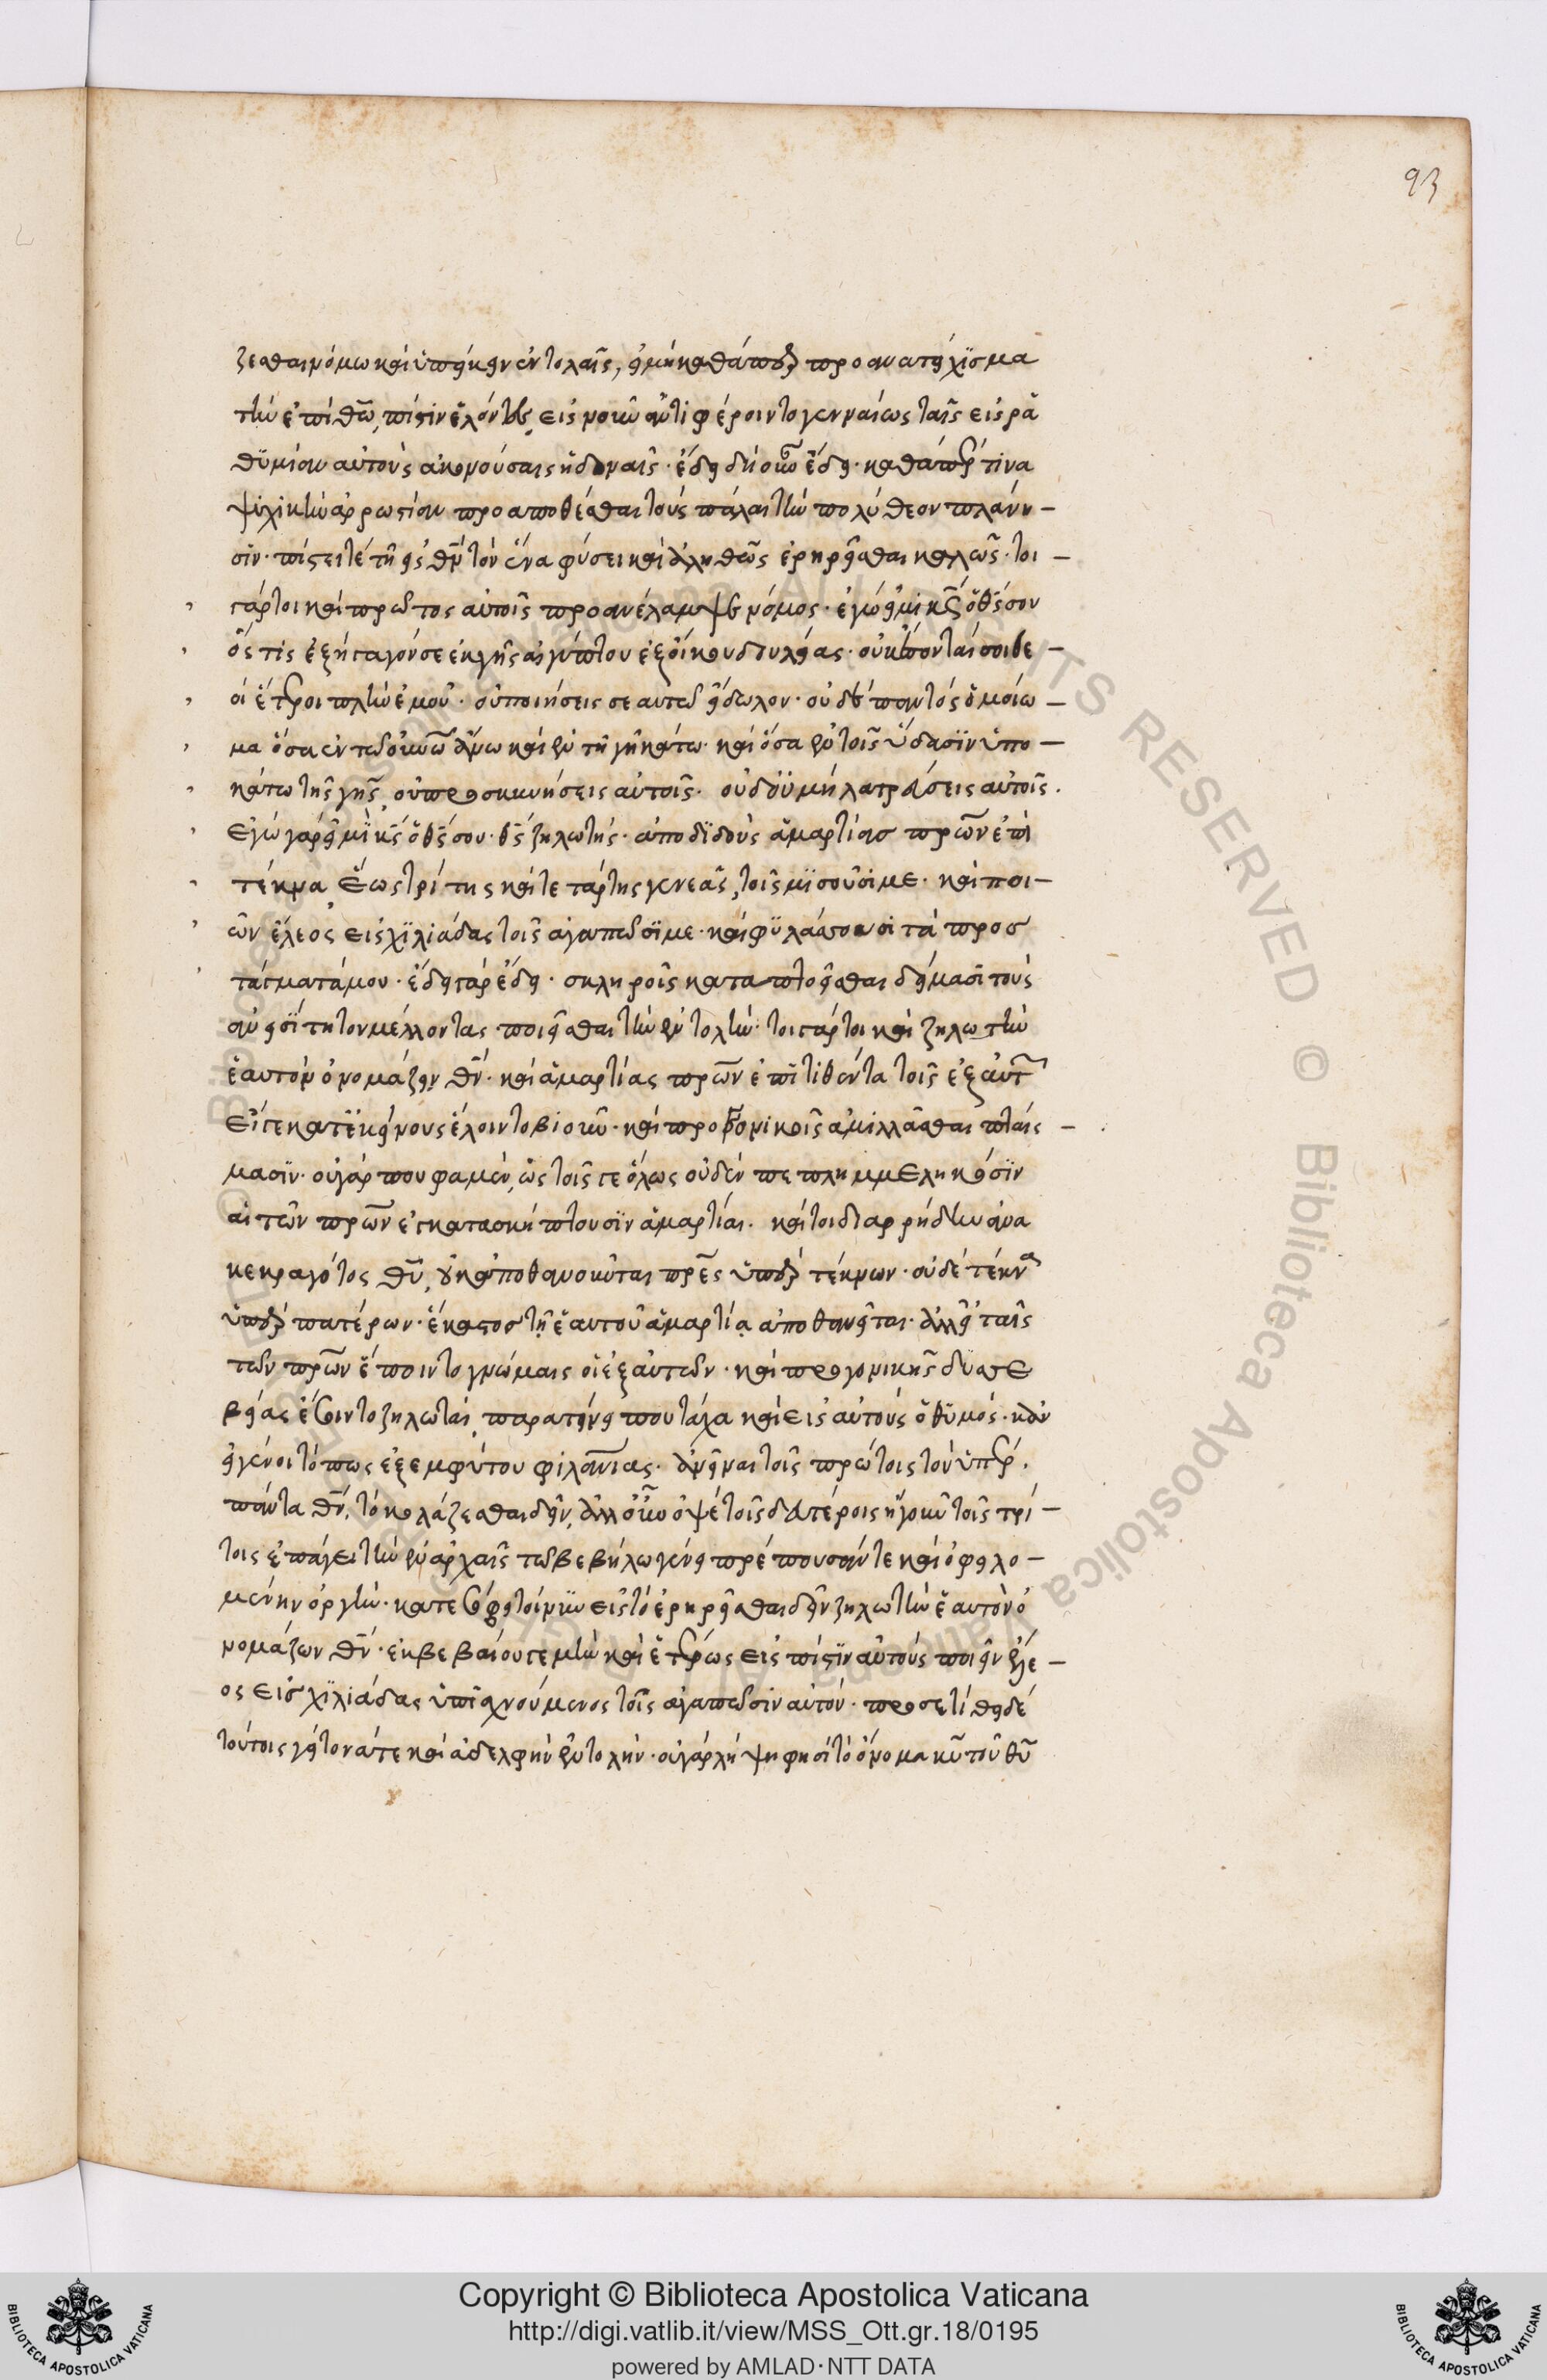 93
ζεσθαι νόμω καὶ ὑπείκειν ἐντολαῖς, εἰ μὴ καθάπερ προανατείχισμα
τὴν ἐπὶ θῶ πίστιν ἑλόντες, εἰς νοῦν ἀντιφέροιντο γενναίως ταῖς εἰς ρα
θυμίαν αὐτοὺς ἀκονούσαις ἡδοναῖς. ἔδει δὴ οὖν ἔδει. καθάπερ τινα
ψυχικὴν ἀρρωστίαν προαποθέσθαι τοὺς πάλαι τὴν πολύθεον πλάνη
σιν. πίστει τέ τῆ εἰς θν τὸν ἕνα φύσει καὶ ἀληθῶς ἐρηρεῖσθαι καλῶς. τοι
γάρτοι καὶ πρῶτος αὐτοῖς προανέλαμψε νόμος. ἐγώ εἰμι κς ὁ θς σου
ὅς τις ἐξήγαγόν σε ἐκ γῆς αἰγύπτου ἐξ οἴκου δουλείας. οὐκ ἔσονταί σοι θε
οὶ ἕτεροι πλὴν ἐμοῦ. οὐ ποιήσεις σεαυτῶ εἴδωλον. οὐδὲ παντὸς ὁμοίω
μα ὅσα ἐν τῶ οὐνῶ ἄνω καὶ ἐν τῆ γῆ κάτω. καὶ ὅσα ἐν τοῖς ὕδασιν ὑπο
κάτω τῆς γῆς, οὐ προσκυνήσεις αὐτοῖς. οὐδ οὐ μὴ λατρεύσεις αὐτοῖς.
Εγὼ γάρ εἰμι κς ὁ θς σου. θς ζηλωτής. ἀποδιδοὺς ἁμαρτίας πρῶν ἐπὶ
τέκνα, ἕως τρίτης καὶ τετάρτης γενεᾶς, τοῖς μισοῦσί με. καὶ ποι
ῶν ἔλεος εἰς χιλιάδας τοῖς ἀγαπῶσί με. καὶ φυλάσσουσι τὰ προσ
τάγματά μου. ἔδει γὰρ ἔδει. σκληροῖς καταπτοεῖσθαι δείμασι τοὺς
ἀνησι τητον μέλλοντας ποιεῖσθαι τὴν ἐντολήν. τοιγάρτοι καὶ ζηλωτὴν
ἑαυτὸν ὀνομάζειν θν. καὶ ἁμαρτίας πρῶν ἐπιτιθέντα τοῖς ἐξ αὐτ
Εἴγε κατ ἐκείνους ἕλοιντο βιοῦν. καὶ προγονικοῖς ἁμιλλᾶσθαι πταίς
μασιν. οὐ γάρ που φαμὲν, ὡς τοῖς γε ὅλως οὐδὲν πεπλημμεληκόσιν
αἱ τῶν πρῶν ἐγκατασκήπτουσιν ἁμαρτίαι. καίτοι διαρρήδην ἀνα
κεκραγότος θῦ, οὐκ ἀποθανοῦνται πρες ὑπὲρ τέκνων. οὐδὲ τέκνα
ὑπὲρ πατέρων. ἕκαστος τῆ ἑαυτοῦ ἁμαρτία ἀποθανεῖται. ἀλλ εἰ ταῖς
τῶν πρῶν ἕποιντο γνώμαις οἱ ἐξ αὐτῶν. καὶ προγονικῆς δυσσε
βείας ἔσοιντο ζηλωταὶ, παρατείνει που τάχα καὶ εἰς αὐτοὺς ὁ θυμός. κἀν
εἰ γένοιτό πως ἐξ ἐμφύτου φιλανιας. ἀνεῖναι τοῖς πρώτοις τὸν ὑπὲρ
πάντα θν, τὸ κολάζεσθαι δεῖν, ἀλλ οὖν ὀψὲ τοῖς δευτέροις ἤγουν τοῖς τρί
τοις ἐπάγει τὴν ἐν ἀρχαῖς τῶ βεβήλω γένει πρέπουσάν τε καὶ ὀφειλο
μένην ὀργήν. κατεσόφει τοίνυν εἰς τὸ ἐρηρεῖσθαι δεῖν ζηλωτὴν ἑαυτὸν ὀ
νομάζων θν. ἐκβεβαίου γε μὴν καὶ ἑτέρως εἰς πίστιν αὐτοὺς ποιεῖν ἔλε
ος εἰς χιλιάδας ὑπισχνούμενος τοῖς ἀγαπῶσιν αὐτόν. προσετίθει δὲ
τούτοις γείτονά τε καὶ ἀδελφὴν ἐντολήν. οὐ γὰρ λήψη φησὶ τὸ ὄνομα κῦ τοῦ θῦ
Copyright © Biblioteca Apostolica Vaticana
http://digi.vatlib.it/view/MSS_Ott.gr.18/0195
powered by AMLAD·NTT DATA